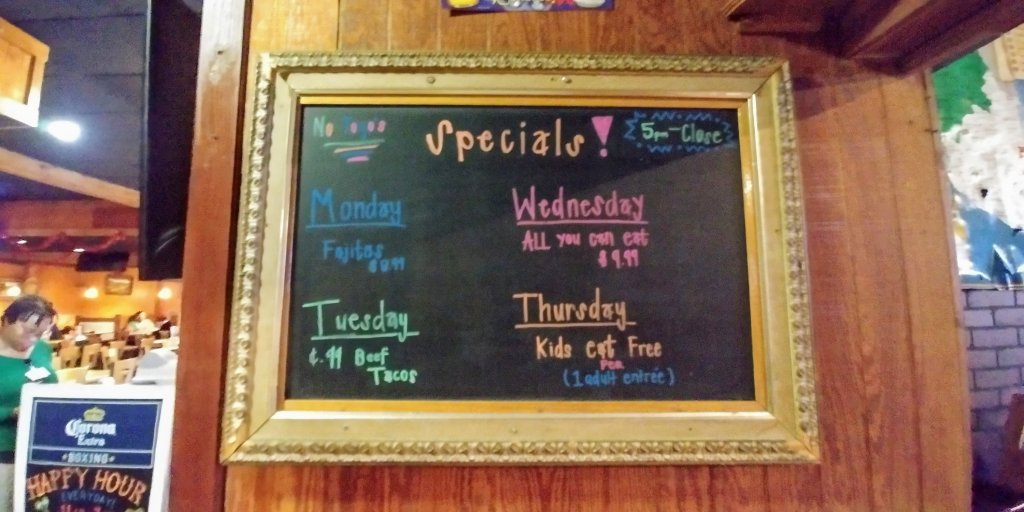 No Togos
Specials!
5pm-Close
Monday
Fajitas
Tuesday
¢.99 Beef
Tacos
Wednesday
ALL you can eat
$9.99
Thursday
Kids eat Free
PER
(1 adult entrée)
Corona
Extra
BOXING
HAPPY HOUR
EVERYDAY!